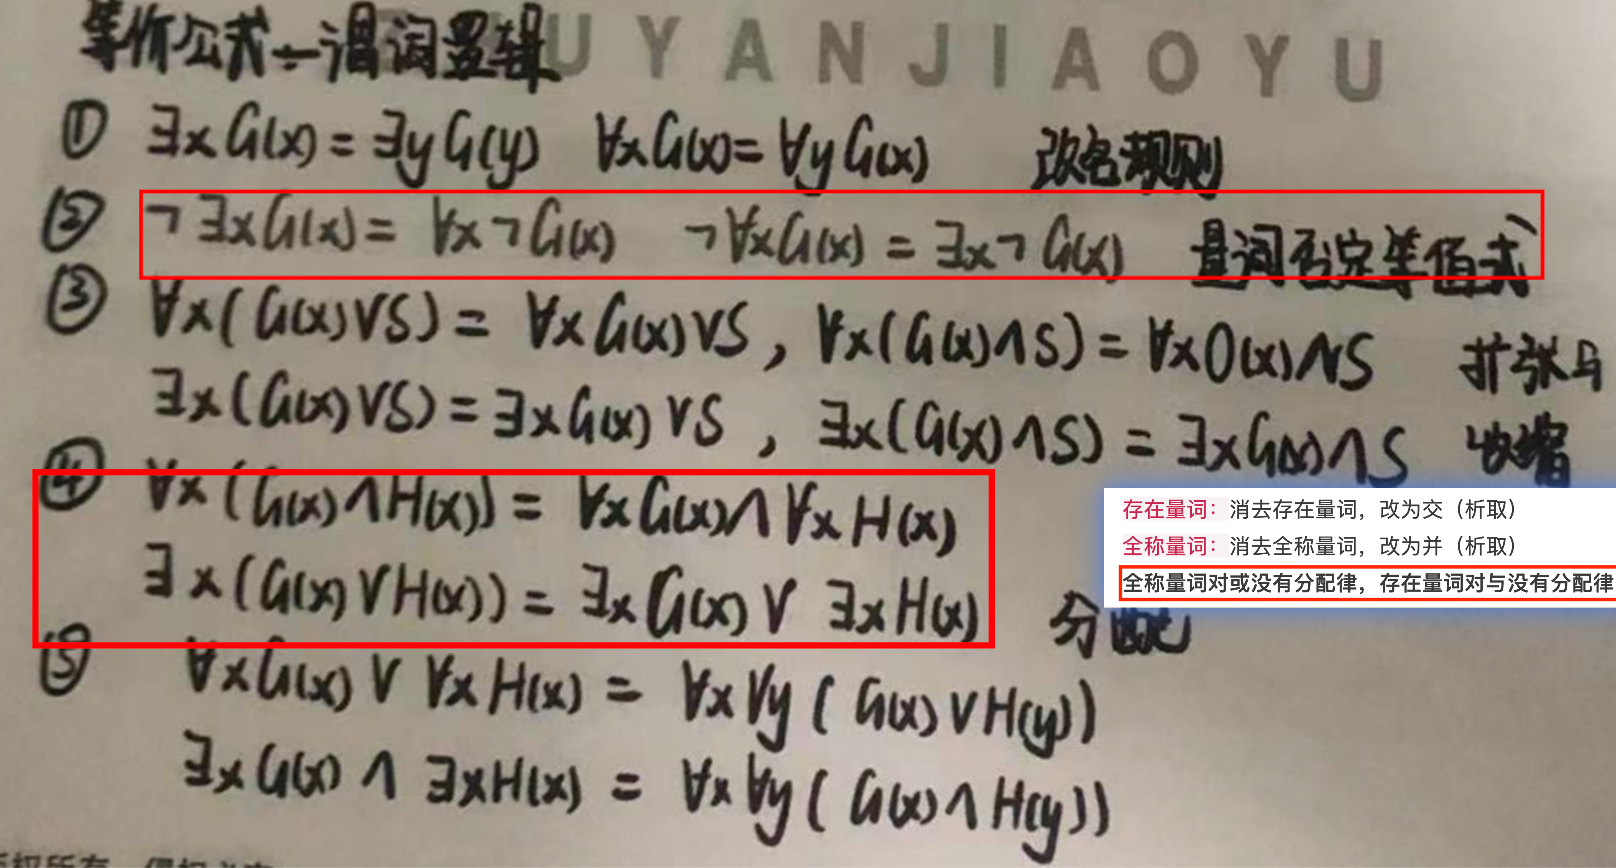 等价公式一谓词逻辑
UYANJIAOYU
① ∃xG(x)=∃yG(y) ∀xG(x)=∀yG(x) 改名规则
② ¬∃xG(x)=∀x¬G(x) ¬∀xG(x)=∃x¬G(x) 量词否定等值式
③ ∀x(G(x)∨S)=∀xG(x)∨S, ∀x(G(x)∧S)=∀xO(x)∧S 扩张与
∃x(G(x)∨S)=∃xG(x)∨S, ∃x(G(x)∧S)=∃xG(x)∧S 收缩
④ ∀x(G(x)∧H(x))=∀xG(x)∧∀xH(x)
∃x(G(x)∨H(x))=∃xG(x)∨∃xH(x) 分配
存在量词:消去存在量词,改为交(析取)
全称量词:消去全称量词,改为并(析取)
全称量词对或没有分配律,存在量词对与没有分配律
⑤ ∀xG(x)∨∀xH(x)=∀x∀y(G(x)∨H(y))
∃xG(x)∧∃xH(x)=∀x∀y(G(x)∧H(y))
版权所有 侵权必究